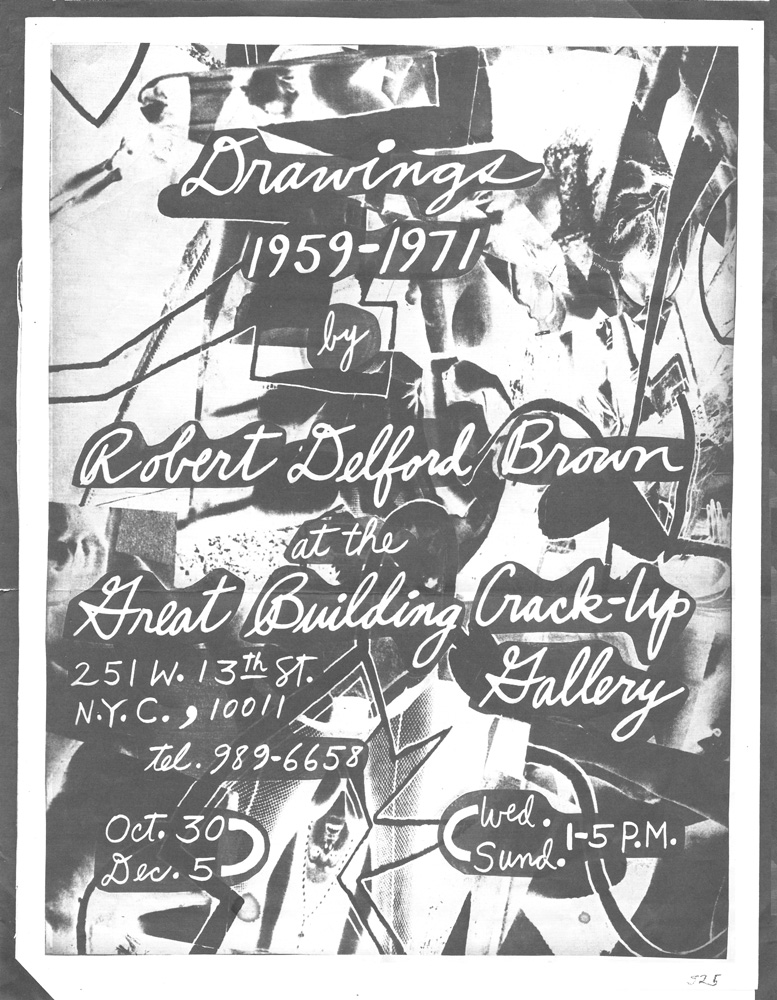 Drawings
1959-1971
by
Robert Delford Brown
at the
Great Building Crack-Up
Gallery
251 W. 13th St.
N.Y.C., 10011
tel. 989-6658
Oct. 30
Dec. 5
Wed.
Sund.
1-5 P.M.